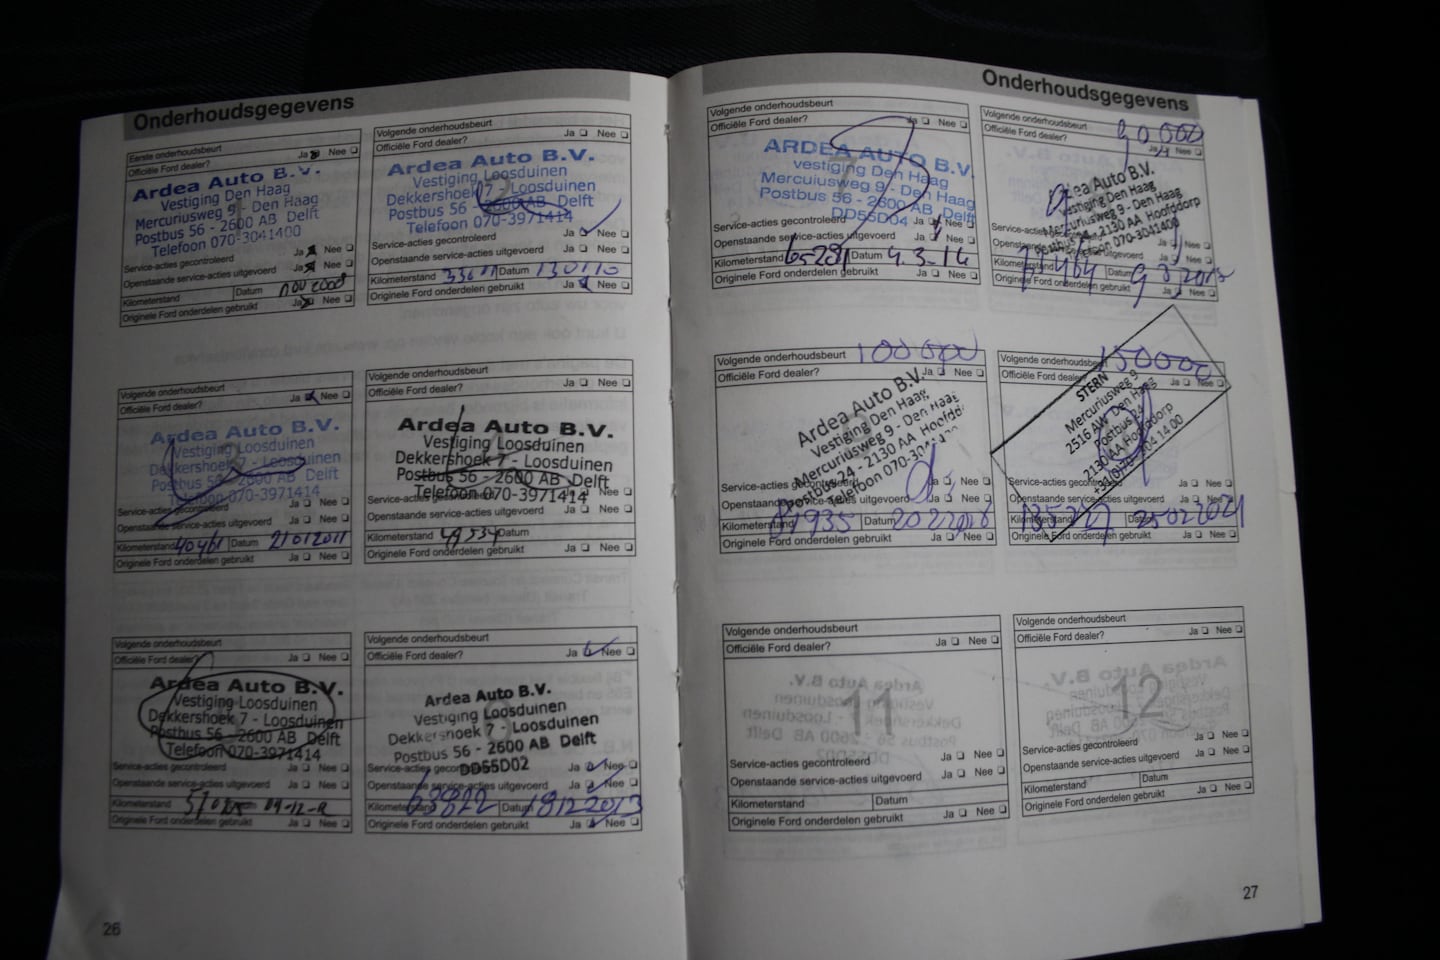 Onderhoudsgegevens
Eerste onderhoudsbeurt
Officiële Ford dealer? Ja Nee
Ardea Auto B.V.
Vestiging Den Haag
Mercuriusweg 9 - Den Haag
Postbus 56 - 2600 AB Delft
Telefoon 070-3041400
Service-acties gecontroleerd Ja Nee
Openstaande service-acties uitgevoerd Ja Nee
Kilometerstand Datum nov 2008
Originele Ford onderdelen gebruikt Ja Nee
Volgende onderhoudsbeurt
Officiële Ford dealer? Ja Nee
Ardea Auto B.V.
Vestiging Loosduinen
Dekkershoek 7 - Loosduinen
Postbus 56 - 2600 AB Delft
Telefoon 070-3971414
Service-acties gecontroleerd Ja Nee
Openstaande service-acties uitgevoerd Ja Nee
Kilometerstand Datum 130110
Originele Ford onderdelen gebruikt Ja Nee
Volgende onderhoudsbeurt
Officiële Ford dealer? Ja Nee
Ardea Auto B.V.
Vestiging Loosduinen
Dekkershoek 7 - Loosduinen
Postbus 56 - 2600 AB Delft
Telefoon 070-3971414
Service-acties gecontroleerd Ja Nee
Openstaande service-acties uitgevoerd Ja Nee
Kilometerstand 40461 Datum 21012011
Originele Ford onderdelen gebruikt Ja Nee
Volgende onderhoudsbeurt
Officiële Ford dealer? Ja Nee
Ardea Auto B.V.
Vestiging Loosduinen
Dekkershoek 7 - Loosduinen
Postbus 56 - 2600 AB Delft
Telefoon 070-3971414
Service-acties gecontroleerd Ja Nee
Openstaande service-acties uitgevoerd Ja Nee
Kilometerstand 49534 Datum
Originele Ford onderdelen gebruikt Ja Nee
Volgende onderhoudsbeurt
Officiële Ford dealer? Ja Nee
Ardea Auto B.V.
Vestiging Loosduinen
Dekkershoek 7 - Loosduinen
Postbus 56 - 2600 AB Delft
Telefoon 070-3971414
Service-acties gecontroleerd Ja Nee
Openstaande service-acties uitgevoerd Ja Nee
Kilometerstand
Originele Ford onderdelen gebruikt Ja Nee
Volgende onderhoudsbeurt
Officiële Ford dealer? Ja Nee
Ardea Auto B.V.
Vestiging Loosduinen
Dekkershoek 7 - Loosduinen
Postbus 56 - 2600 AB Delft
DD55D02
Service-acties gecontroleerd Ja Nee
Openstaande service-acties uitgevoerd Ja Nee
Kilometerstand Datum 18122013
Originele Ford onderdelen gebruikt Ja Nee
26
Onderhoudsgegevens
Volgende onderhoudsbeurt
Officiële Ford dealer? Ja Nee
7
ARDEA AUTO B.V.
vestiging Den Haag
Mercuiusweg 9 - Den Haag
Postbus 56 - 2600 AB Delft
DD55D04
Service-acties gecontroleerd Ja Nee
Openstaande service-acties uitgevoerd Ja Nee
Kilometerstand 65281 Datum 4.3-14
Originele Ford onderdelen gebruikt Ja Nee
Volgende onderhoudsbeurt 90000
Officiële Ford dealer? Ja Nee
Ardea Auto B.V.
Vestiging Den Haag
Mercuriusweg 9 - Den Haag
Postbus 24 - 2130 AA Hoofddorp
Telefoon 070-3041400
Kilometerstand Datum
Originele Ford onderdelen gebruikt Ja Nee
Volgende onderhoudsbeurt 100000
Officiële Ford dealer? Ja Nee
Ardea Auto B.V.
Vestiging Den Haag
Mercuriusweg 9 - Den Haag
Postbus 24 - 2130 AA Hoofddo
Telefoon 070-304
Service-acties gecontroleerd Ja Nee
Openstaande service-acties uitgevoerd Ja Nee
Kilometerstand Datum
Originele Ford onderdelen gebruikt Ja Nee
Volgende onderhoudsbeurt 150000
Officiële Ford dealer? Ja Nee
STERN
Mercuriusweg 9
2516 AW Den Haag
Postbus 24
2130 AA Hoofddorp
Service-acties gecontroleerd Ja Nee
Openstaande service-acties uitgevoerd Ja Nee
Kilometerstand Datum 25022021
Originele Ford onderdelen gebruikt Ja Nee
Volgende onderhoudsbeurt
Officiële Ford dealer? Ja Nee
11
Service-acties gecontroleerd Ja Nee
Openstaande service-acties uitgevoerd Ja Nee
Kilometerstand Datum
Originele Ford onderdelen gebruikt Ja Nee
Volgende onderhoudsbeurt
Officiële Ford dealer? Ja Nee
12
Service-acties gecontroleerd Ja Nee
Openstaande service-acties uitgevoerd Ja Nee
Kilometerstand Datum
Originele Ford onderdelen gebruikt Ja Nee
27